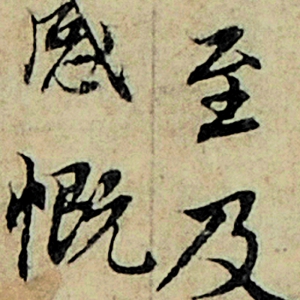 至及
感慨